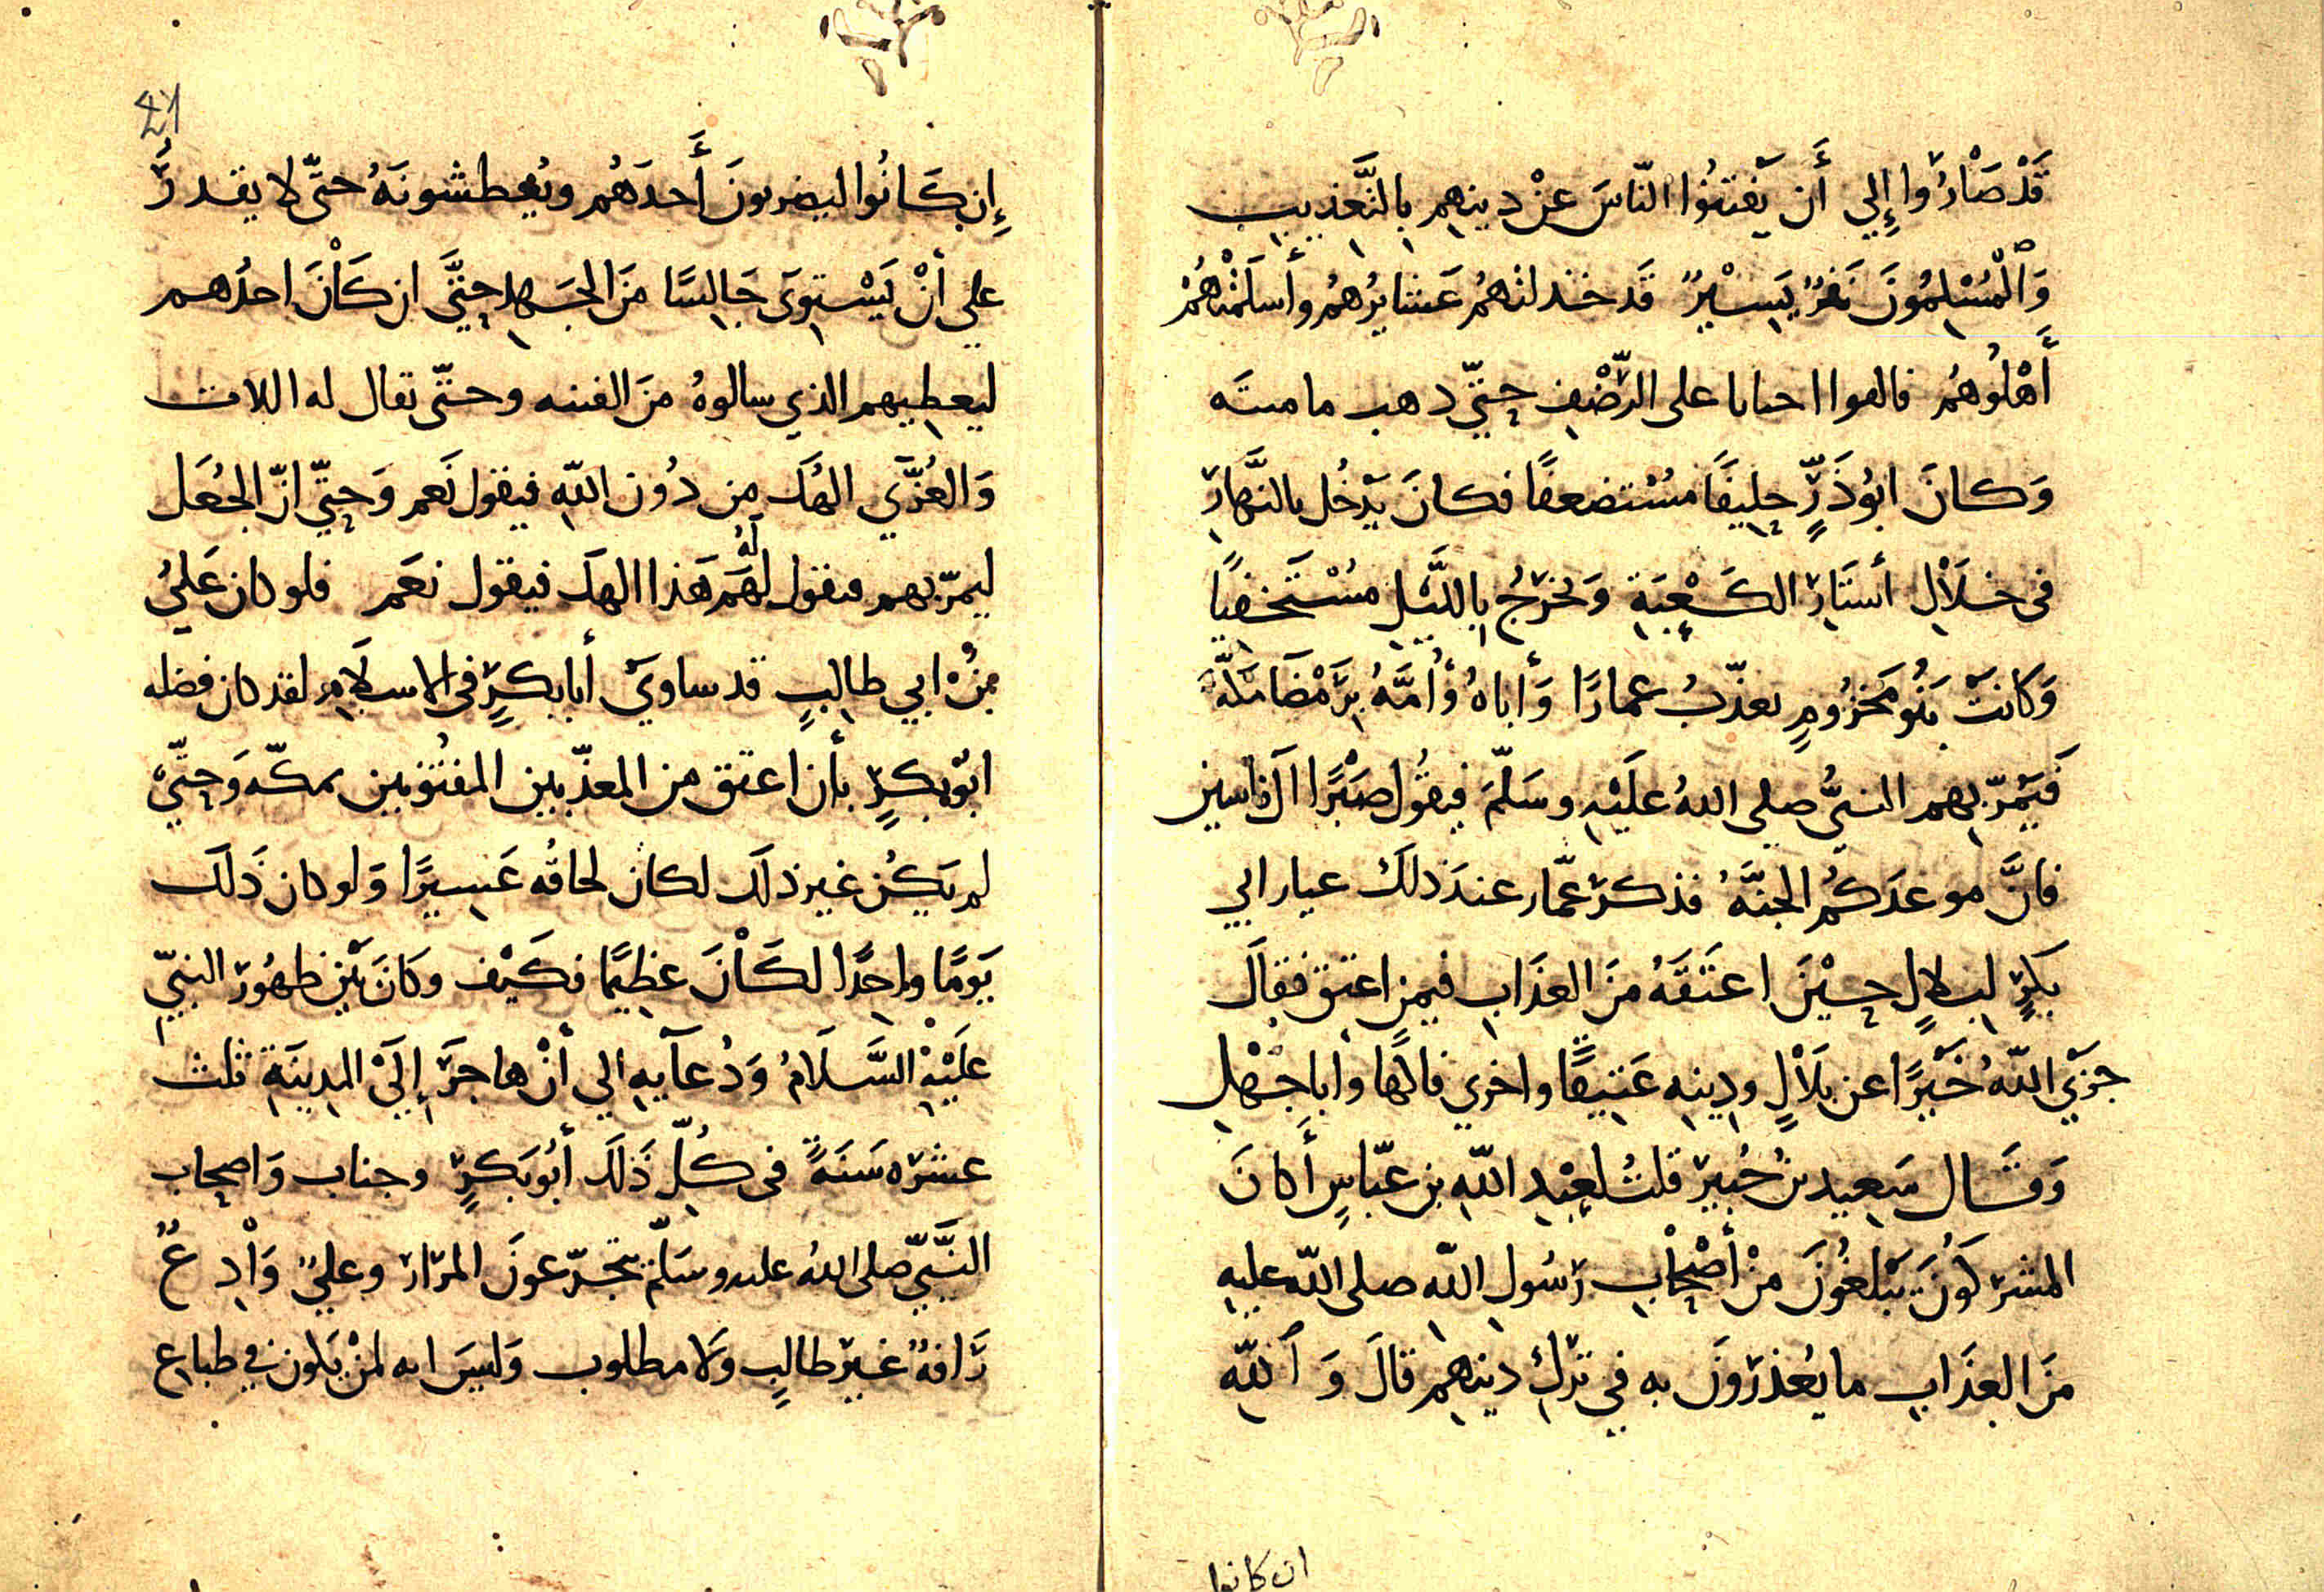 قَدْ صَارُوا إِلي أَن يَفتنُوا النّاسَ عنْ دينهِم بِالتَّعْذِيبِ
وَالْمُسْلِمُونَ نَفَرٌ يَسِيْرٌ قَد خذلتهُم عَشايرُهُم وأَسلَمْتهُمْ
أَهْلُوهُم فالقوا احبابا على الرّضْفِ حتّي ذهب ما متَه
وَكانَ ابُوذَرٍّ حلِيفًا مسُتضعفًا فكانَ يَدْخُل بالنَّهارِ
في خلَالِ أستَارِ الكَعْبَةِ وَيخرُجُ بِاللَّيْلِ مسُتَخفيًا
وَكانتْ بَنُو مَخزُومٍ تعذّبُ عمارًا وَأباهُ وَأمَّهُ بِرَمْضَا مَكّةَ
فَيَمرّ بهِم النبيُّ صلى اللهُ علَيْهِ وسَلّمَ فيقُول صَبْرًا آل ياسين
فانَّ موعدَكُم الجنَّهُ فذكرَ عمّار عندَ ذلكَ عيار ابي
بَكرٍ لبلالٍ حيْنَ اعتَقَهُ منَ العذَابِ فيمن اعتق فقالَ
جزَي اللّهُ خَيْرًا عن بلَالٍ ودِينهِ عَتيقًا واخري فاكها وأبا جهْلِ
وَقَال سَعِيد بنُ جُبيرْ قلتُ لعبْدِ اللّهِ بن عبّاسٍ أَكانَ
المشركُونَ يَبْلغُونَ منْ أَصْحَابِ رَسُولِ اللّهِ صلى اللّه عليهِ
منَ العذَابِ ما يُعذرُونَ به في تركِ دينهِم قالَ وَاللّهِ
ان كانوا
41
إِن كَانُوا ليضربونَ أَحدَهُم ويُعطشونَهُ حتّى لا يقدرُ
علي أنْ يَسْتوِيَ جَالِسًا منَ الجَهدِ حتَّي ان كَانَ احدُهم
ليعطِيهم الذي سالوهُ منَ الفتنه وحتّى تقال له اللات
وَالعُزَّي الهكَ من دُون اللّهِ فيقول نَعم وَحتّي انّ الجُعَل
ليمرّ بهم فيقول لهُم لَهُ هَذا الهكَ فيقول نعَم فلو كان عَليُ
بنُ ابي طالِبٍ قد ساويَ أبا بكرٍ في الاسلَامِ لقد كان فضله
ابُو بكرٍ بأن اعتق من المعذّبين المفتُونين بمكّه وَحتّي
لم يَكُن غير ذلكَ لكان لحاقُه عَسِيرًا وَلو كان ذَلكَ
يَومًا واحِدًا لكَانَ عظِيمًا فكَيْفَ وكَانَ بَيْن ظهُورِ النبيّ
علَيْهِ السَّلَامُ وَدُعَآيهِ الي أنْ هاجَرَ إلَيْ المدِينَةِ ثلث
عشره سَنَةً في كُلّ ذَلكَ أبُو بَكرٍ وجناب وَاصحاب
النَّبيّ صلى اللهُ عليه وسَلّمَ يتجرّعونَ المرَارَ وعليٌ وَادِعٌ
رَافهٌ غيرَ طالِبٍ وَلا مطلوب وَليسَ انه لمْ يَكون في طباع